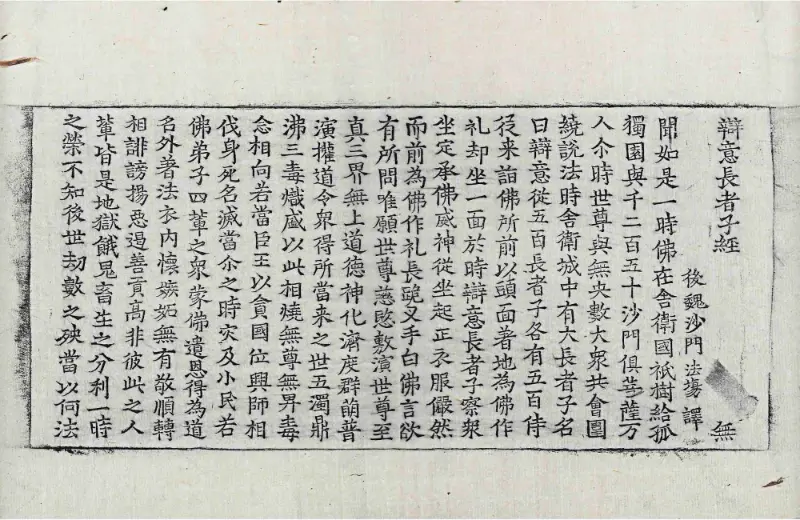 辯意長者子經 無
後魏沙門法場譯
聞如是一時佛在舍衛國祇樹給孤
獨園與千二百五十沙門俱菩薩万
人尒時世尊與無央數大衆共會圍
繞說法時舍衛城中有大長者子名
曰辯意從五百長者子各有五百侍
從来詣佛所前以頭面著地為佛作
礼却坐一面於時辯意長者子察衆
坐定承佛威神從坐起正衣服儼然
而前為佛作礼長跪叉手白佛言欲
有所問唯願世尊慈愍敷演世尊至
真三界無上道德神化濟度群萌普
演權道令衆得所當来之世五濁鼎
沸三毒熾盛以此相燒無尊無卑毒
念相向若當臣王以貪國位興師相
伐身死名滅當尒之時灾及小民若
佛弟子四輩之衆蒙佛遺恩得為道
名外著法衣內懷嫉妬無有敬順轉
相誹謗揚惡遏善貢高非彼此之人
輩皆是地獄餓鬼畜生之分利一時
之榮不知後世劫數之殃當以何法